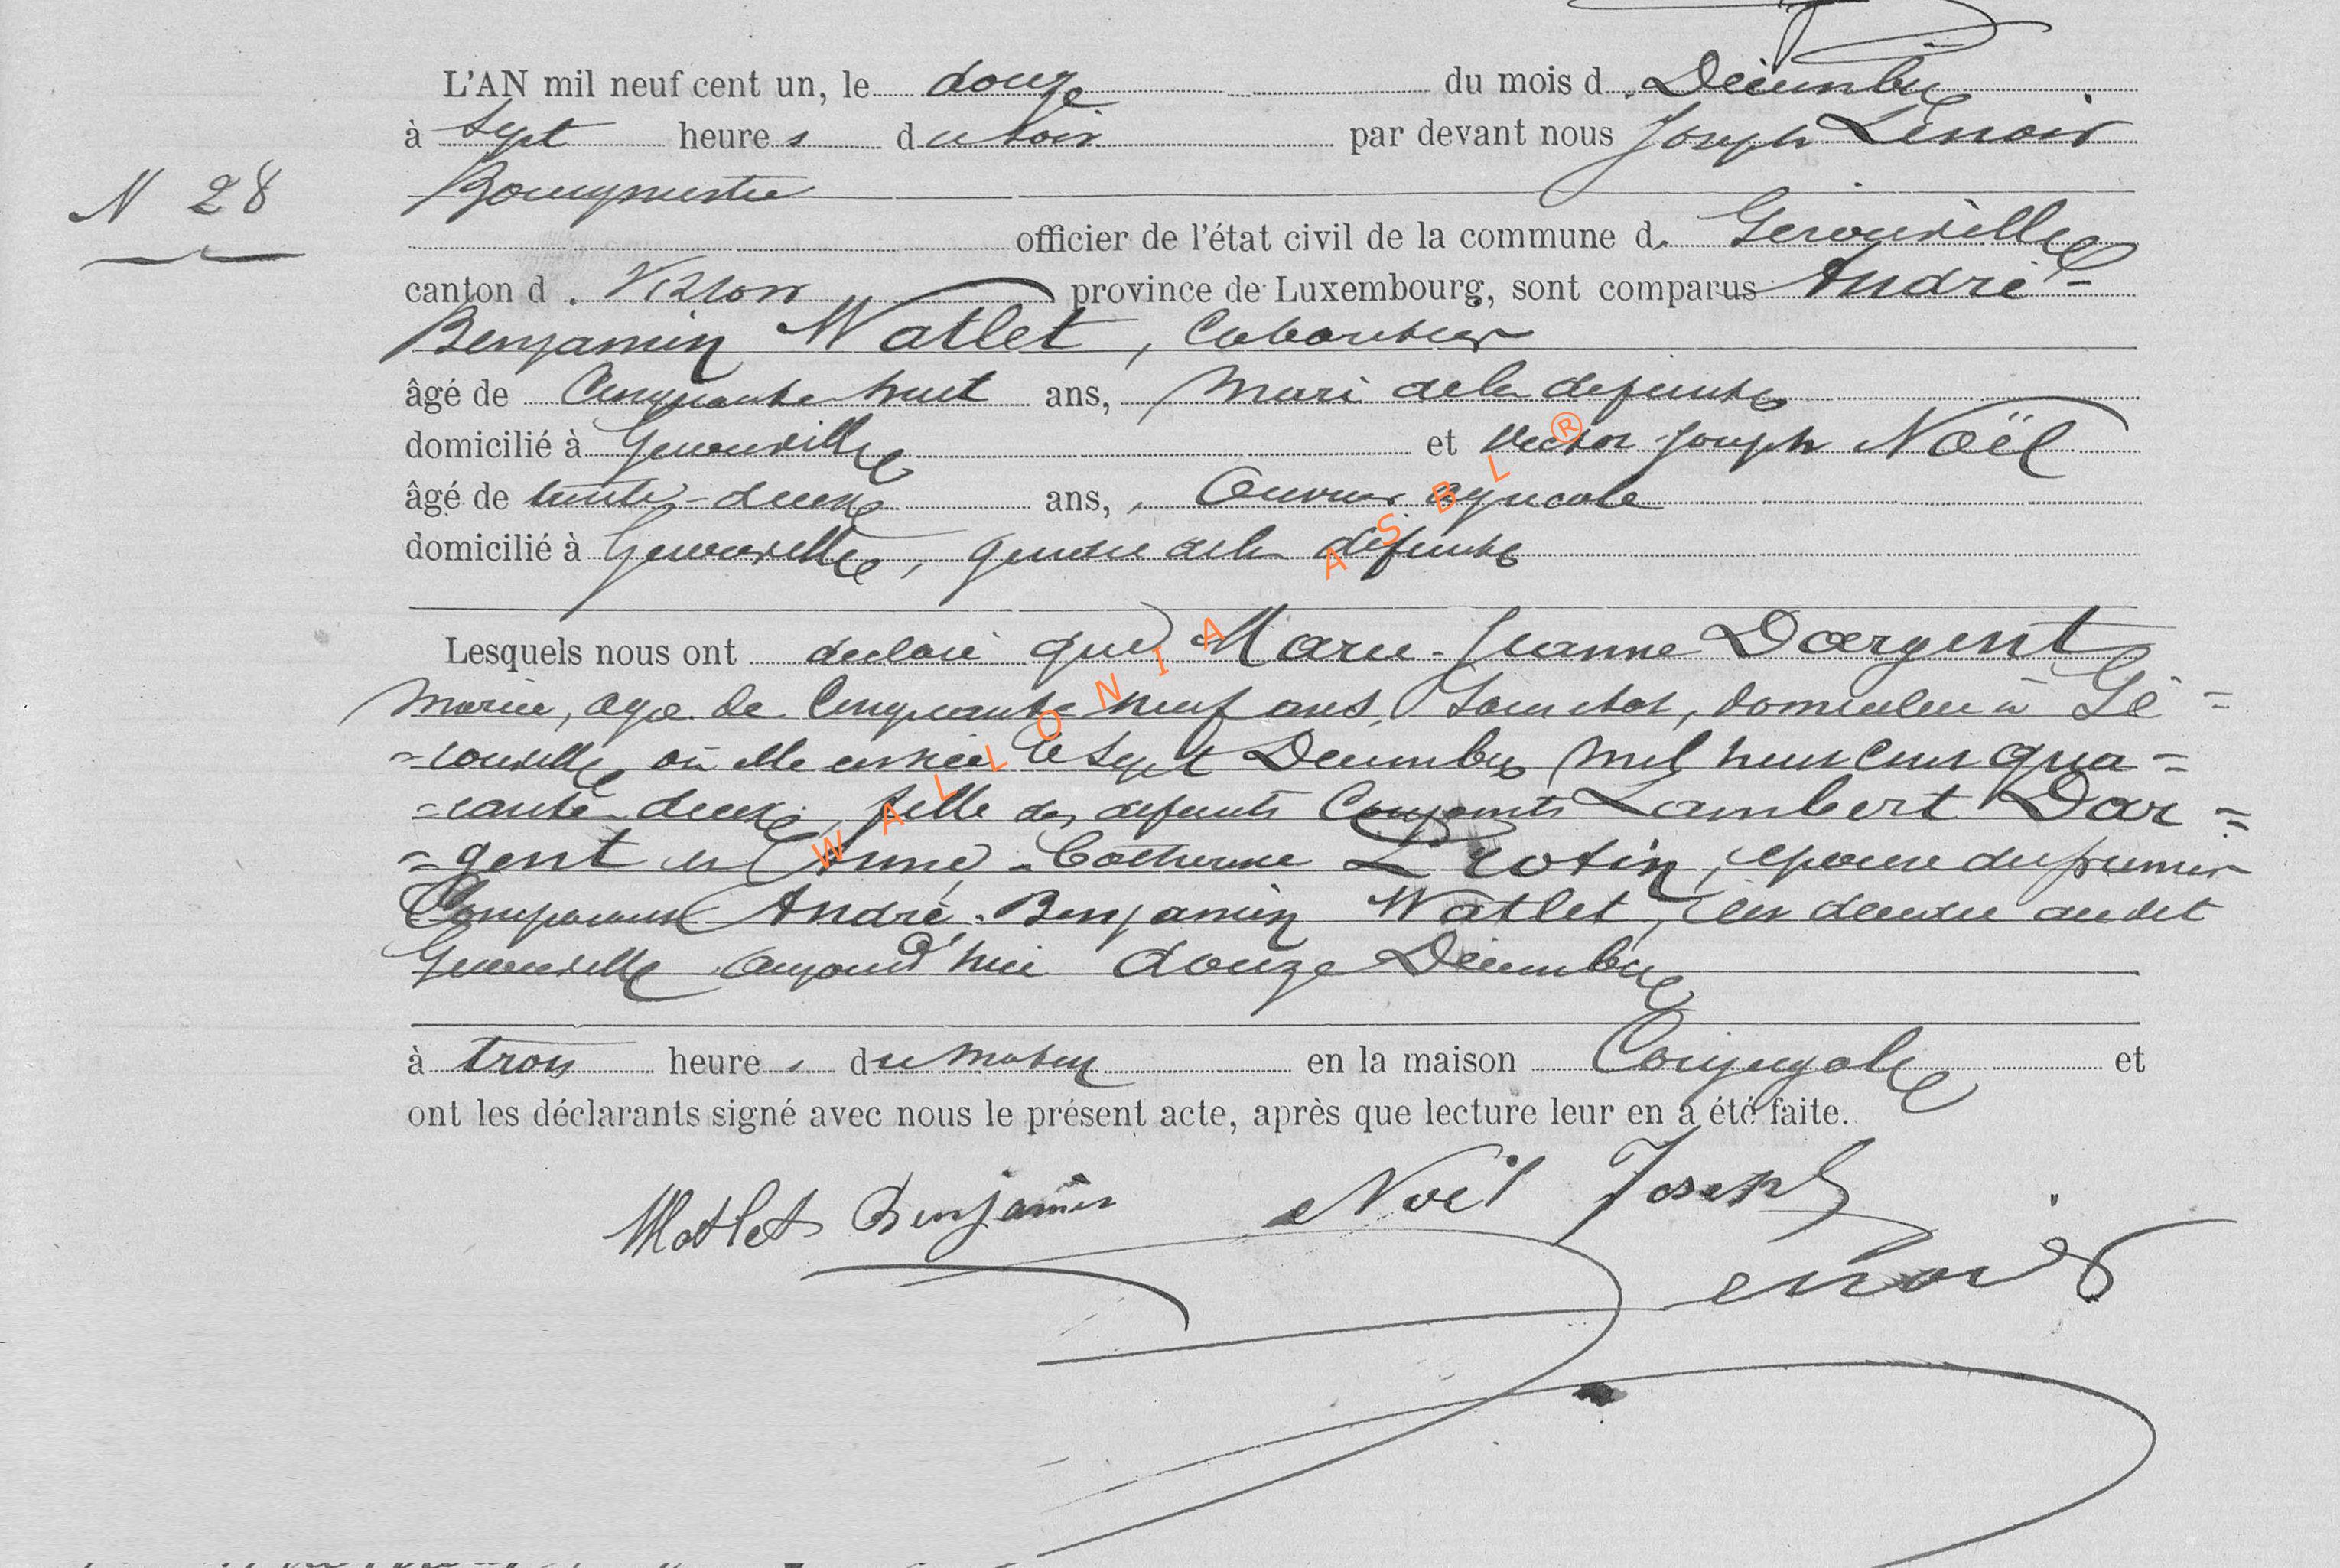 L'AN mil neuf cent un, le douze du mois d. Décembre
à sept heures du soir par devant nous Joseph Lenoir
N 28
Bourgmestre
officier de l'état civil de la commune d. Gerouville
canton d. Virton province de Luxembourg, sont comparus André-
Benjamin Watlet, Cabaretier
âgé de Cinquante huit ans, Mari de la defunte
domicilié à Gerouville et Victor Joseph Noël
âgé de trente-deux ans, Ouvrier agricole
domicilié à Gerouville, gendre de la défunte
Lesquels nous ont declaré que Marie-Jeanne Dargent
Mariée, agée de Cinquante neuf ans, Sans état, domiciliée à Gé-
-rouville où elle est née le sept Décembre mil huit cent qua-
-rante-deux, fille des defunts Conjoints Lambert Dar-
-gent et Anne-Catherine Protin, épouse du premier
Comparant André-Benjamin Watlet, est décédée audit
Gerouville aujourd'hui douze Décembre
à trois heures du matin en la maison Conjugale et
ont les déclarants signé avec nous le présent acte, après que lecture leur en a été faite.
Watlet Benjamin Noël Joseph
Lenoir
WALLONIA ASBL ®